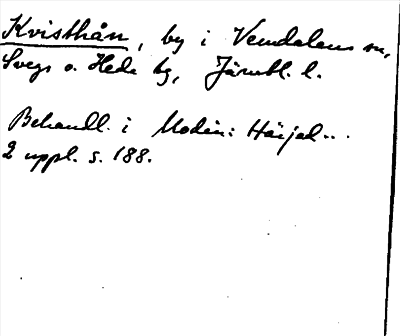 Kvisthån, by i Vemdalens sn,
Svegs o. Hede tg, Jämtl. l.
Behandl. i Modin: Härjed...
2 uppl. s. 188.